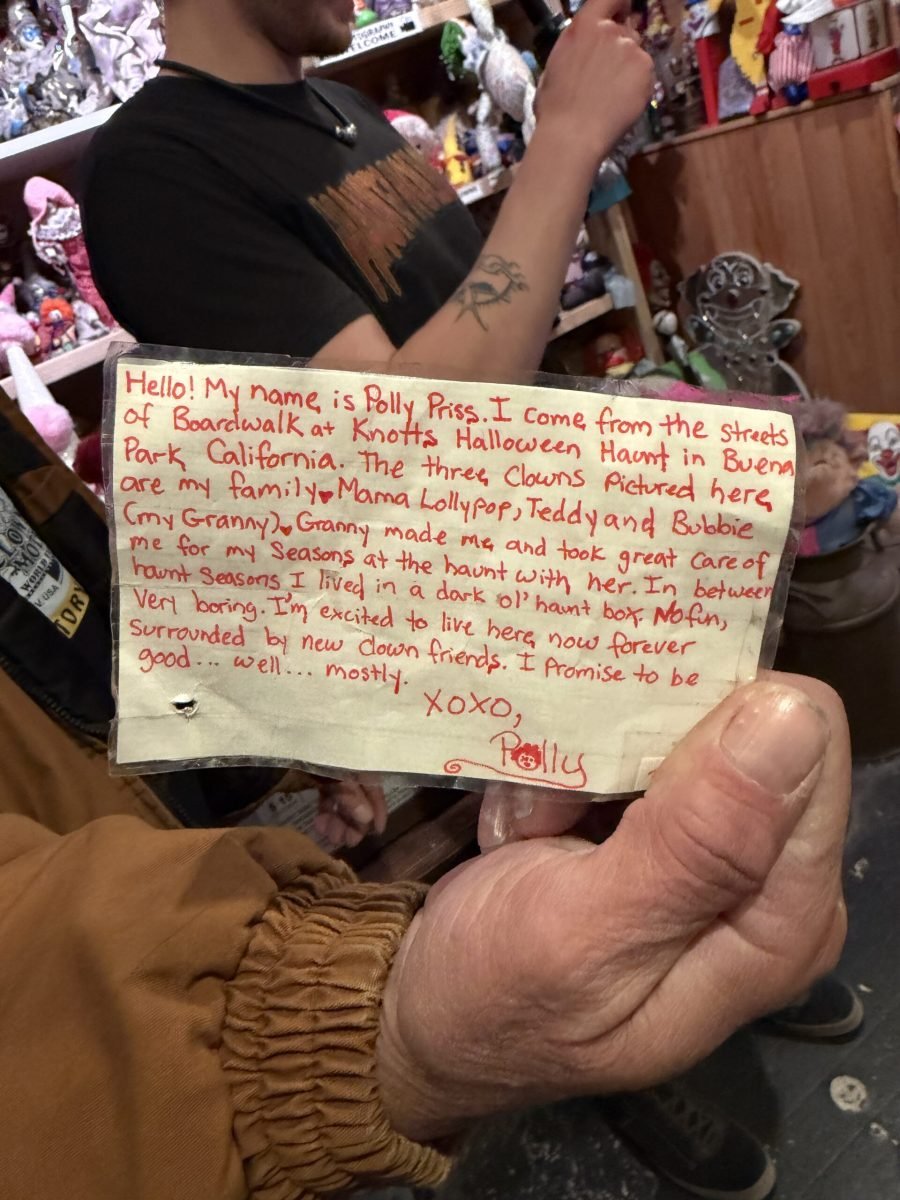 WELCOME
Hello! My name is Polly Priss. I come from the streets
of Boardwalk at Knotts Halloween Haunt in Buena
Park California. The three Clowns Pictured here
are my family♥Mama Lollypop, Teddy and Bubbie
(my Granny)♥Granny made me and took great care of
me for my Seasons at the haunt with her. In between
haunt Seasons I lived in a dark ol' haunt box. No fun,
Very boring. I'm excited to live here now forever
surrounded by new clown friends. I Promise to be
good... well... mostly.
XOXO,
Polly